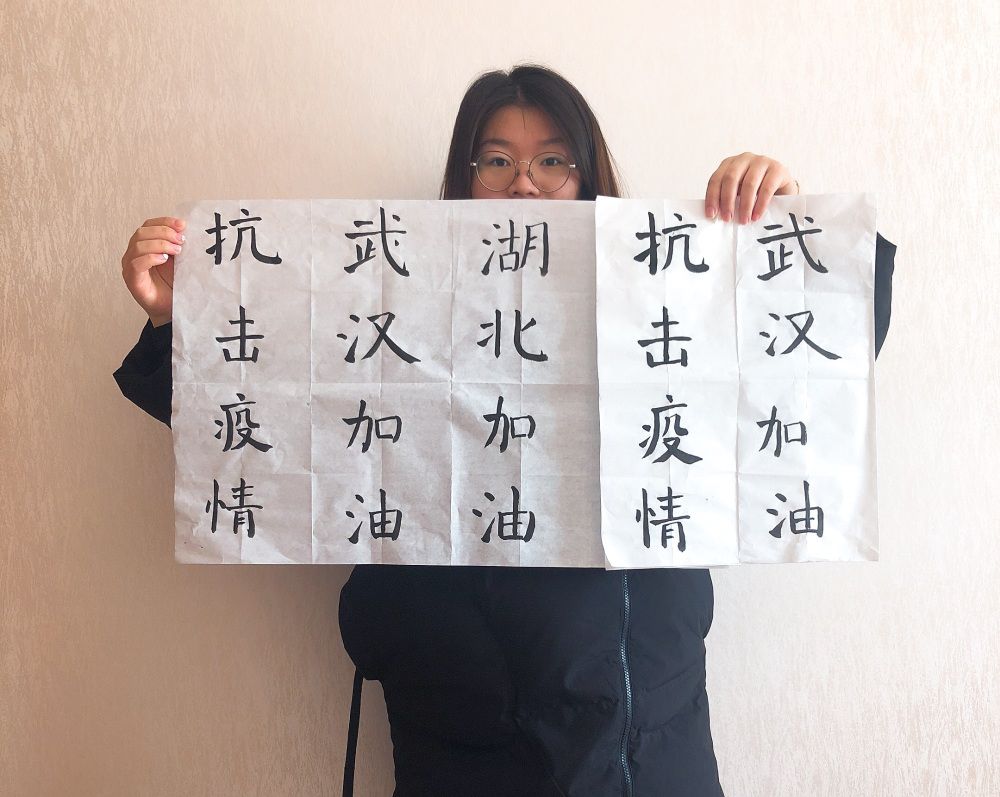 抗击疫情
武汉加油
湖北加油
抗击疫情
武汉加油